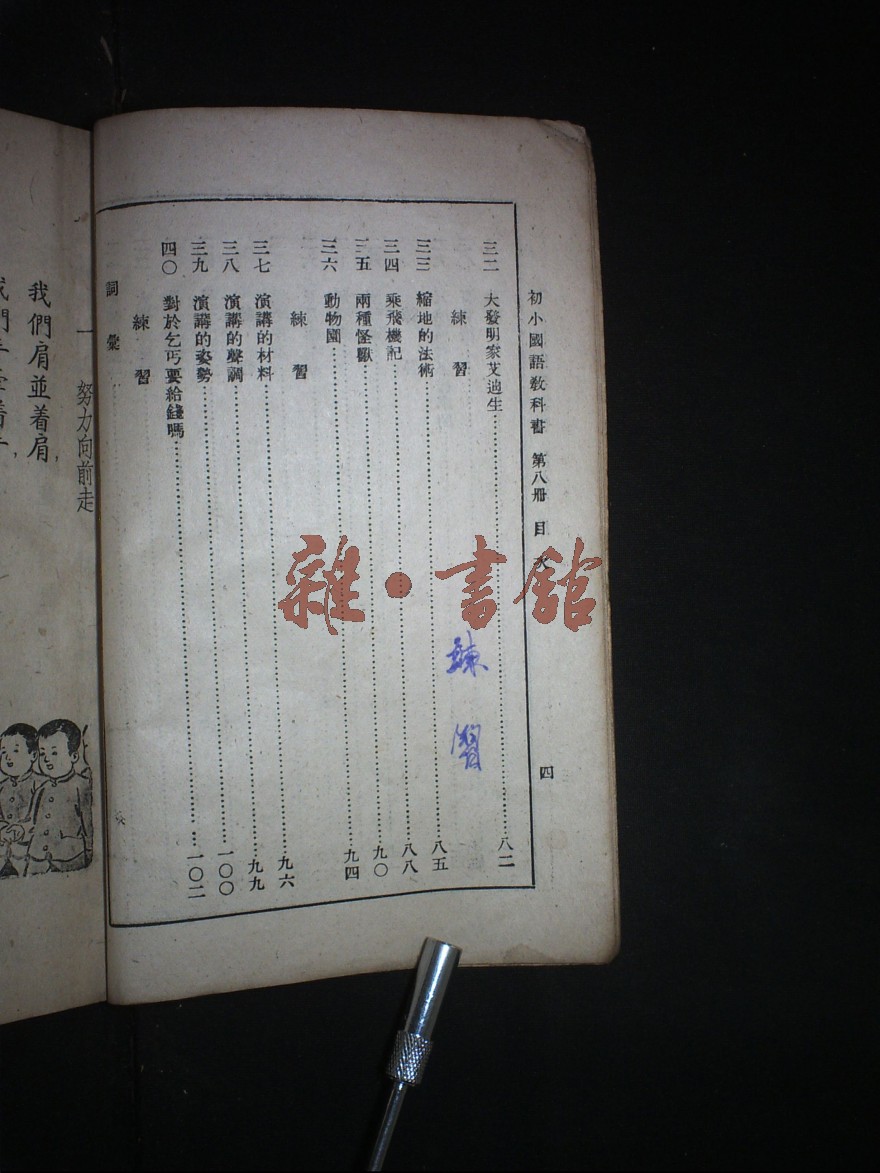 初小國語教科書 第八册 目次 四
三二 大發明家艾迪生 八二
練習
三三 縮地的法術 八五
三四 乘飛機記 八八
三五 兩種怪獸 九〇
三六 動物園 九四
練習
三七 演講的材料 九六
三八 演講的聲調 九九
三九 演講的姿勢 一〇〇
四〇 對於乞丐要給錢嗎 一〇二
練習
詞彙
練習
雜·書館
一 努力向前走
我們肩並着肩，